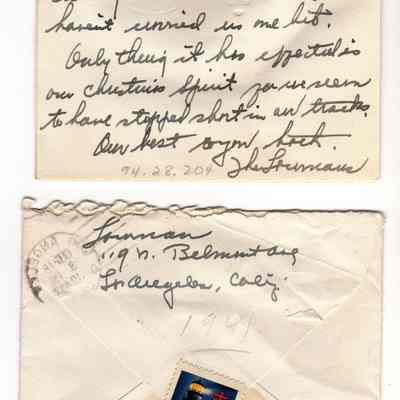 haven't worried us one bit.
Only thing it has effected is
our Christmas Spirit for we seem
to have stopped short in our tracks.
Our best to you both.
The Lowmans
94.28.209
Lowman
119 N. Belmont Ave
Los Angeles, Calif
1941